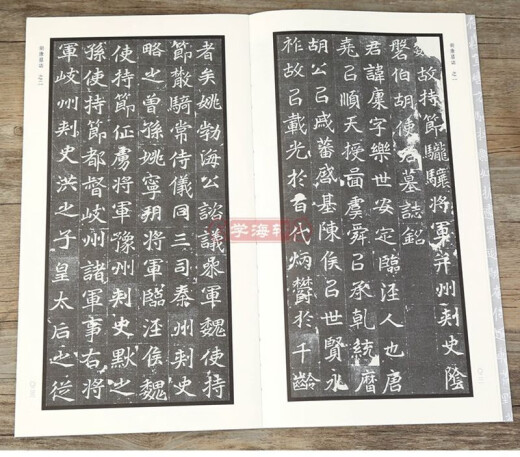 故持節龍驤將軍并州刺史陰
磐伯胡使君墓誌銘
君諱康字樂世安定臨涇人也唐
堯㠯順天授啚虞舜㠯承乾統曆
胡公㠯盛蕃啓基陳侯㠯世賢永
祚故㠯載光於百代炳鬱於千齡
者矣姚勃海公諮議叅軍魏使持
節散騎常侍儀同三司秦州刾史
略之曾孫姚寧朔將軍臨涇侯魏
使持節征虜將軍豫州刾史默之
孫使持節都督岐州諸軍事右將
軍岐州刾史洪之子皇太后之從
學海軒